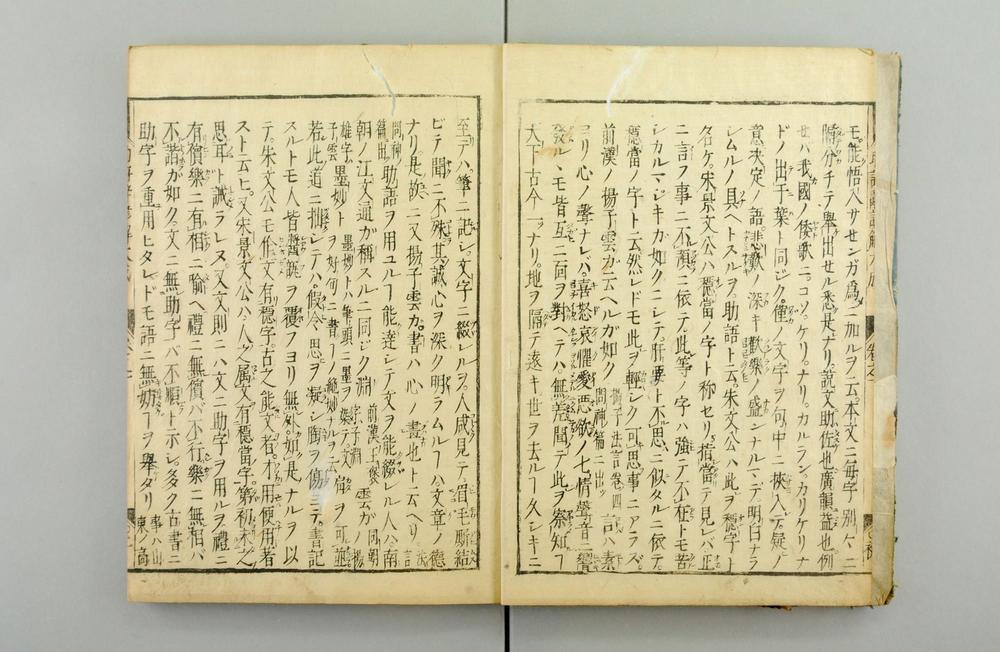 モ能悟ハサセンガ爲ニ加ルヲ云本文ニ毎字別ケニ
隨分チテ擧出セル悉是ナリ。説文助佐也廣韻益也例
セバ我國ノ倭歌ニ。コソ。ケリ。ナリ。カルラン。カリケリナ
ドノ出于葉ト同ジク。僅ノ文字ヲ句中ニ挾入テ疑ノ
意決定ノ語悲歡ノ深キ歡樂ノ盛シナルマデ。明白ナラ
シムルノ具ヘトスルヲ。助語ト云。朱文公ハ此ヲ穩字ト
名ケ。宋景文公ハ穩當ノ字ト称セリ。指當テ見レバ正
ニ言フ事ニ不預ニ依テ。此等ノ字ハ強テ不在トモ苦
シカルマジキカ如クニシテ。肝要ト不思ニ似タルニ依テ。
穩當ノ字ト云。然レドモ此ヲ輕シク可思事ニアラズ。
前漢ノ揚子雲カ云ヘルガ如ク 揚子法言卷四問神篇ニ出ツ 言ハ素
ヨリ心ノ聲ナレバ。喜怒哀懼愛惡欲ノ七情聲音ニ響
發ルヽモ皆互ニ面ヲ對ヘテハ無差聞テ此ヲ察知フ
天下古今一ツナリ。地ヲ隔テ遠キ世ヲ去ルフ久シキニ
至テハ。筆ニ記シ。文字ニ綴レルヲ。人咸見テ眉毛願結
ビテ聞ニ不殊其誠心ヲ深ク明ラムルフハ文章ノ德
ナリ。是故ニ又揚子雲カ。書ハ心ノ畫也ト云ヘリ 法言
問神篇出 助語ヲ用ユルフ能達シテ文ヲ能綴レル人ハ南
朝ノ江文通が稱スルニ同ジク淵 前漢ノ王褒字子淵 雲ガ 同朝ノ楊
雄字子雲 墨妙ト 墨妙トハ筆頭ニ墨ヲ染テ文ヲ好句ニ書フノ絶妙ナルヲ云 尙ヲ可並
若此道ニ拙シテハ。假令思ヲ凝シ陶ヲ傷ミテ。書記
スルトモ人皆醬瓿ヲ覆フヨリ無外。如是ナルヲ以
テ。朱文文公モ作文有穩字。古之能文者。才用便用著
スト云ヒ。又宋景文公ハ。人之属文。有穩當字。第初未之
思耳ト誡ラレヌ。又文則ニハ文ニ助字ヲ用ルヲ禮ニ
有儐樂ニ有相ニ喩ヘ禮ニ無儐バ不行樂ニ無相バ
不諧が如ク文ニ無助字バ不順ト示シ。多ク古書ニ
助字ヲ重用ヒタレドモ語ニ無妨フヲ擧タリ 事ハ山東ノ高